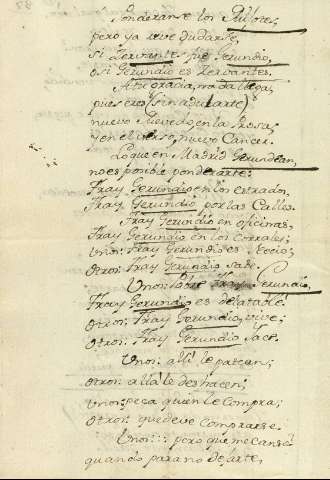 Ponderanse los Autores,
pero ya se ve dudarse,
si Zervantes fue Gerundio,
o si Gerundio es Zervantes.
A tu gracia, nada llega,
pues eres (sin adularte)
nuevo Quevedo, en la Prosa,
y en el verso, nuevo Cancer.
Lo que en Madrid Gerundean,
no es posible ponderarte:
Fray Gerundio, en los estrados,
Fray Gerundio por las Calles.
Fray Gerundio en oficinas,
Fray Gerundio en los Corrales;
Unos: Fray Gerundio es necio;
Otros: Fray Gerundio sabe.
Unos: Padre Fray Gerundio,
Fray Gerundio es delatable.
Otros: Fray Gerundio, vive;
Otros: Fray Gerundio Yace.
Unos: alli le patean;
Otros: alla le deshacen;
Unos: peca quien le Compra;
Otros: que deve Comprarse.
Unos: pero que me canso
quando para no de arte,